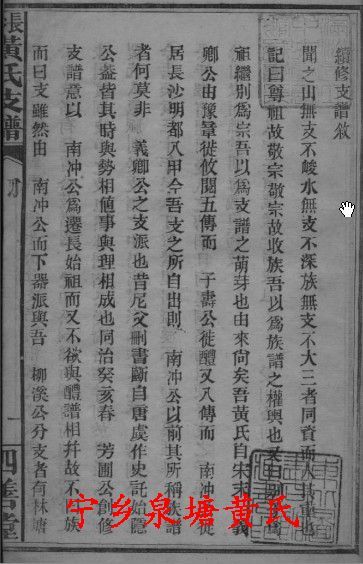 續修支譜敘
聞之山無支不峻水無支不深族無支不大三者同實而人其重也
記曰尊祖故敬宗敬宗故收族吾以爲族譜之權輿也又曰別子爲
祖繼別爲宗吾以爲支譜之萌芽也由來尙矣吾黃氏自宋末義
卿公由豫章徙攸閱五傳而 子壽公徙醴又八傳而 南冲公徙
居長沙明都八甲今吾支之所自出則 南冲公以前其所稱族譜
者何莫非 義卿公之支派也昔尼父刪書斷自唐虞作史託始隱
公蓋皆其時與勢相値事與理相成也同治癸亥春 芳圃公創修
支譜意以 南冲公爲遷長始祖而又不欲與醴譜相幷故不曰族
而曰支雖然由 南冲公而下器派與吾 柳溪公分支者有林塘
張黃氏支譜
四善堂
宁乡泉塘黄氏